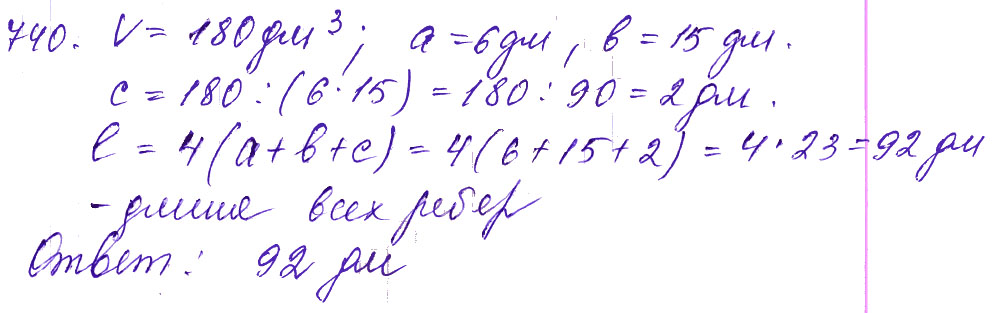 740. V = 180 дм³; a = 6 дм, в = 15 дм.
c = 180 : (6 · 15) = 180 : 90 = 2 дм.
ℓ = 4 (a + в + c) = 4 (6 + 15 + 2) = 4 · 23 = 92 дм
- длина всех ребер
Ответ: 92 дм